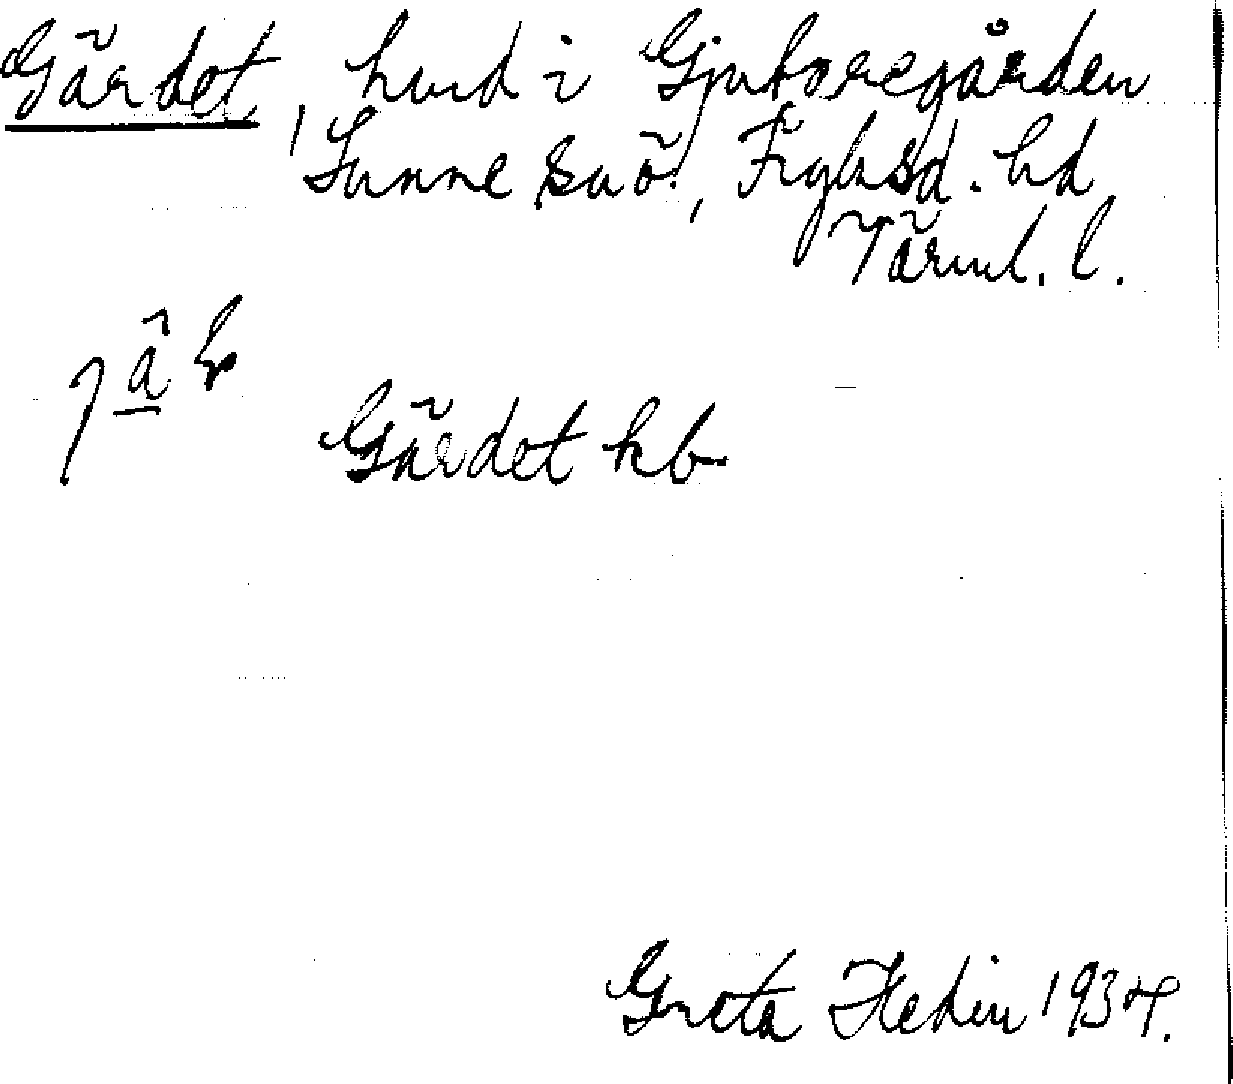 Gärdet, hmd i Gjutaregården
Sunne sn ö., Fryksd. hd
Värml. l.
Gärdet kb
Greta Hedin 1934.